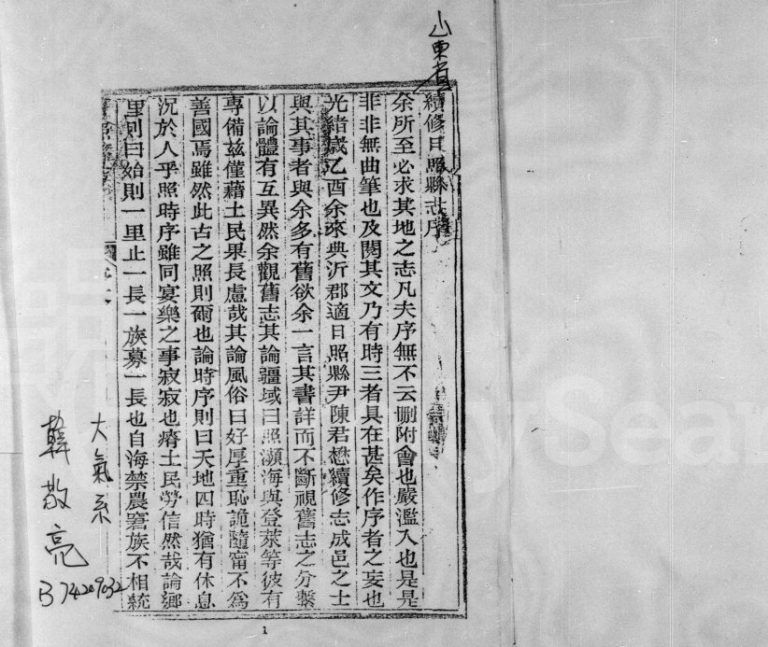 山東省
續修日照縣志序
余所至必求其地之志凡夫序無不云刪附會也嚴濫入也是是
非非無曲筆也及閱其文乃有時三者具在甚矣作序者之妄也
光緒歲乙酉余來典沂郡適日照縣尹陳君懋續修志成邑之士
與其事者與余多有舊欲余一言其書詳而不斷視舊志之分繫
以論體有互異然余觀舊志其論疆域曰照瀕海與登萊等彼有
專備茲僅藉土民果長慮哉其論風俗曰好厚重恥詭隨甯不為
善國焉雖然此古之照則爾也論時序則曰天地四時猶有休息
況於人乎照時序雖同宴樂之事寂寂也瘠土民勞信然哉論鄉
里則曰始則一里止一長一族募一長也自海禁農窘族不相統
大氣系
韓敬亮
B74209032
1